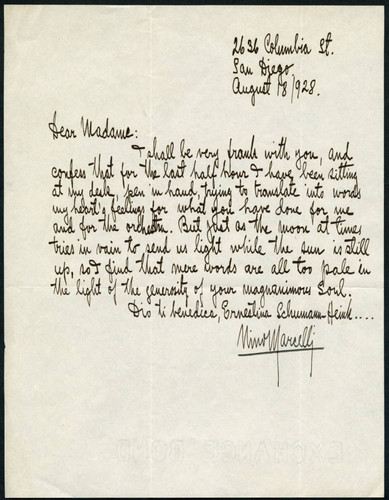 2636 Columbia St.
San Diego.
August 18/928.
Dear Madame:
I shall be very frank with you, and
confess that for the last half hour I have been sitting
at my desk, pen in hand, trying to translate into words
my heart's feelings for what you have done for me
and for the orchestra. But just as the moon at times
tries in vain to send us light while the sun is still
up, so I find that mere words are all too pale in
the light of the generosity of your magnanimous Soul.
Dio ti benedica, Ernestina Schumann-Heink....
Nino Marcelli
EXCHANGE BOND